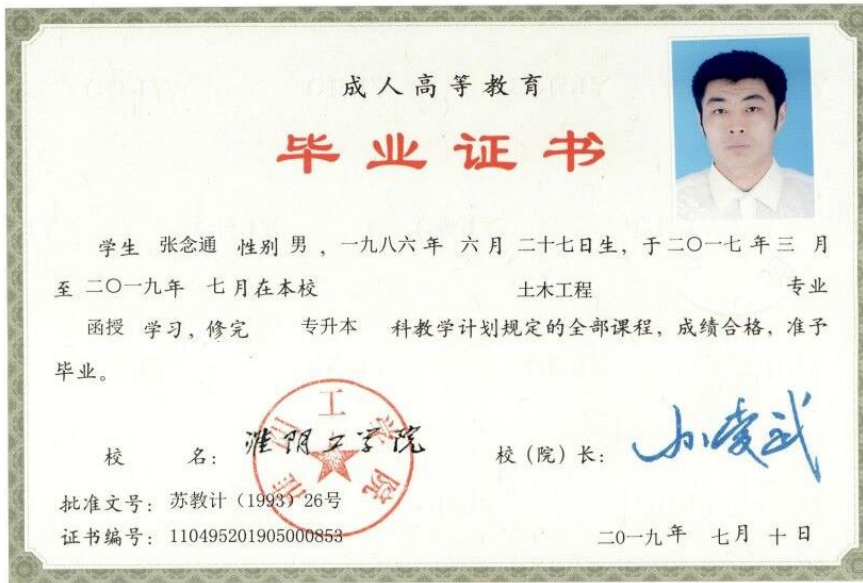 成人高等教育
毕业证书
学生 张念通 性别 男 ，一九八六 年 六 月 二十七日生，于二〇一七 年 三 月
至 二〇一九年 七 月在本校 土木工程 专业
函授 学习，修完 专升本 科教学计划规定的全部课程，成绩合格，准予
毕业。
校 名： 淮阴工学院
校（院）长：
批准文号：苏教计（1993）26号
证书编号：110495201905000853
二〇一九年 七月 十日